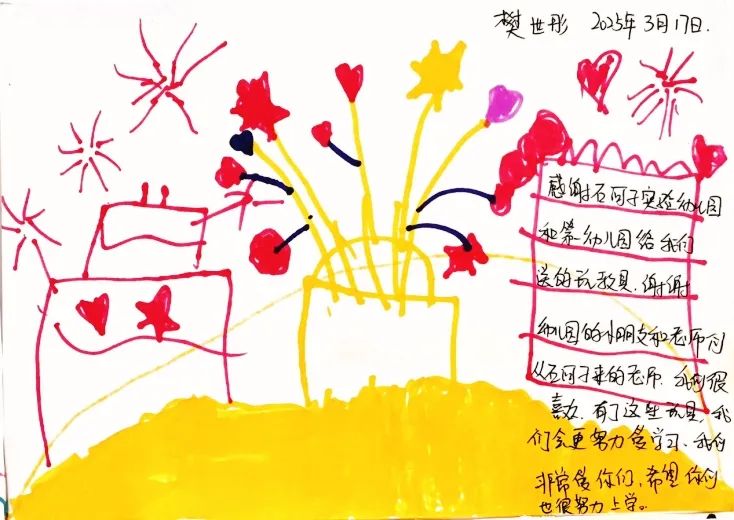 樊世彤 2025年3月17日.
感谢石河子实验幼儿园
和第一幼儿园给我们
送的玩教具.谢谢
幼儿园的小朋友和老师们
从石河子来的老师.我们很
喜欢.有了这些玩具.我
们会更努力爱学习.我们
非常爱你们,希望你们
也很努力上学。